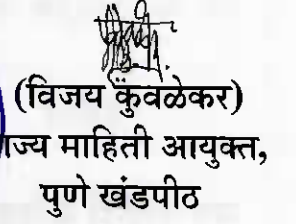 (विजय कुंवळेकर)
ज्य माहिती आयुक्त,
पुणे खंडपीठ